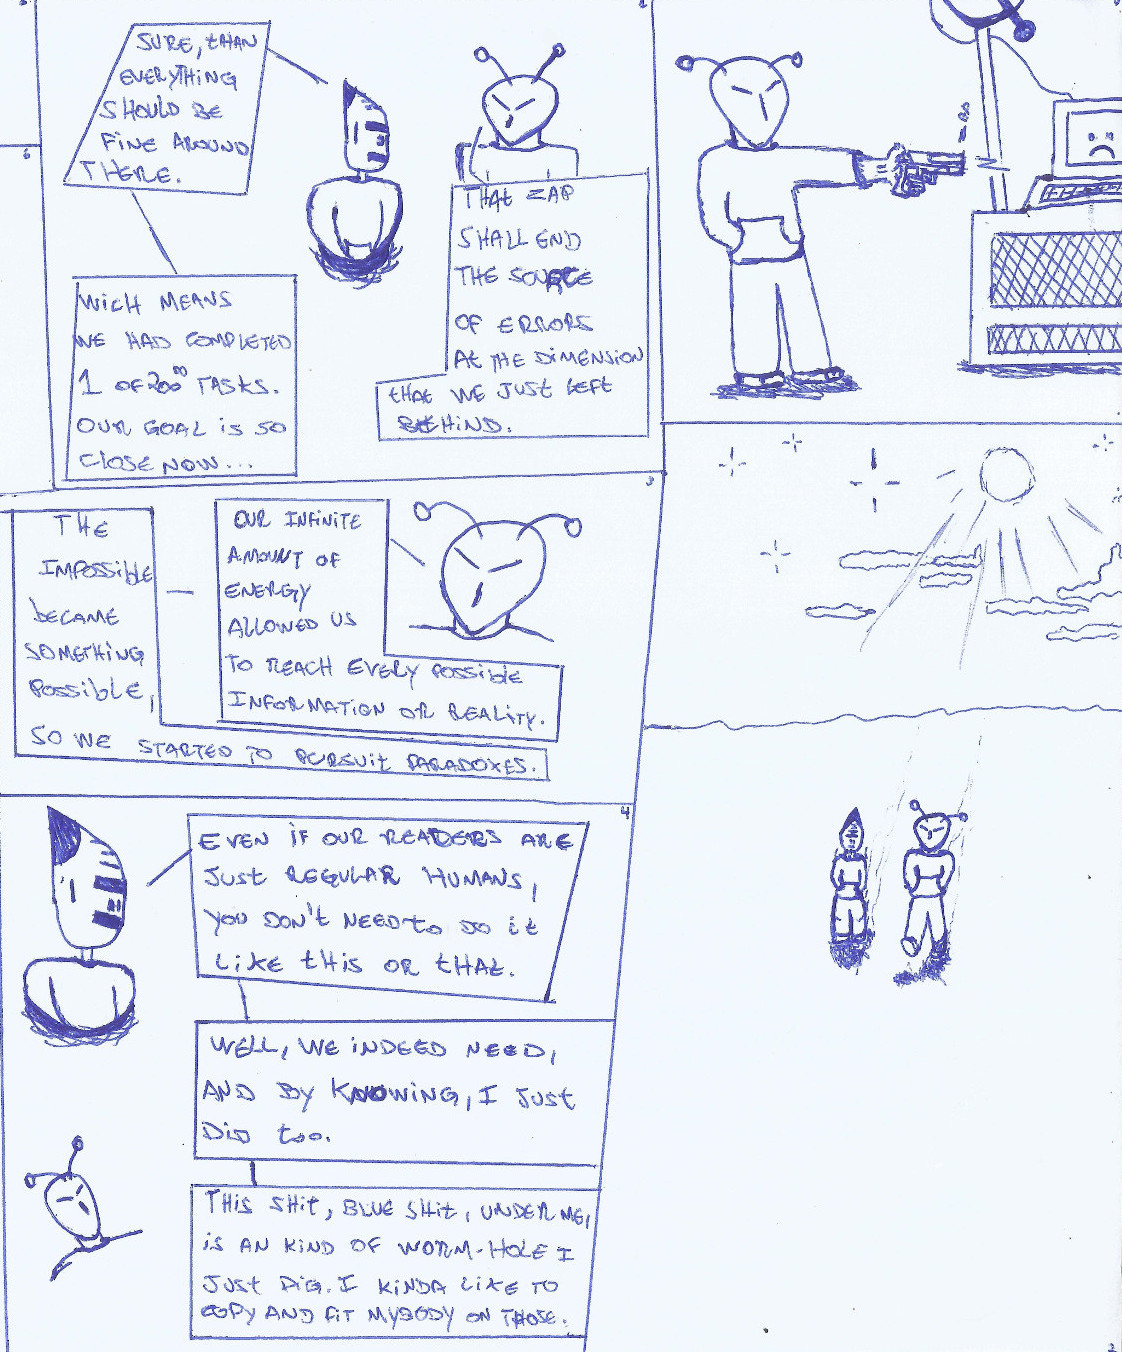 SURE, THAN
EVERYTHING
SHOULD BE
FINE AROUND
THERE.
WICH MEANS
WE HAD COMPLETED
1 OF 200⁰⁰ TASKS.
OUR GOAL IS SO
CLOSE NOW...
THAT ZAP
SHALL END
THE SOURCE
OF ERRORS
AT THE DIMENSION
THAT WE JUST LEFT
BEHIND.
3
OUR INFINITE
AMOUNT OF
ENERGY
ALLOWED US
TO REACH EVERY POSSIBLE
INFORMATION OR REALITY.
THE
IMPOSSIBLE
BECAME
SOMETHING
POSSIBLE,
SO WE STARTED TO PURSUIT PARADOXES.
4
EVEN IF OUR READERS ARE
JUST REGULAR HUMANS,
YOU DON'T NEED TO DO IT
LIKE THIS OR THAT.
WELL, WE INDEED NEED,
AND BY KNOWING, I JUST
DID TOO.
THIS SHIT, BLUE SHIT, UNDER ME,
IS AN KIND OF WORM-HOLE I
JUST DIG. I KINDA LIKE TO
COPY AND FIT MYBODY ON THOSE.
2